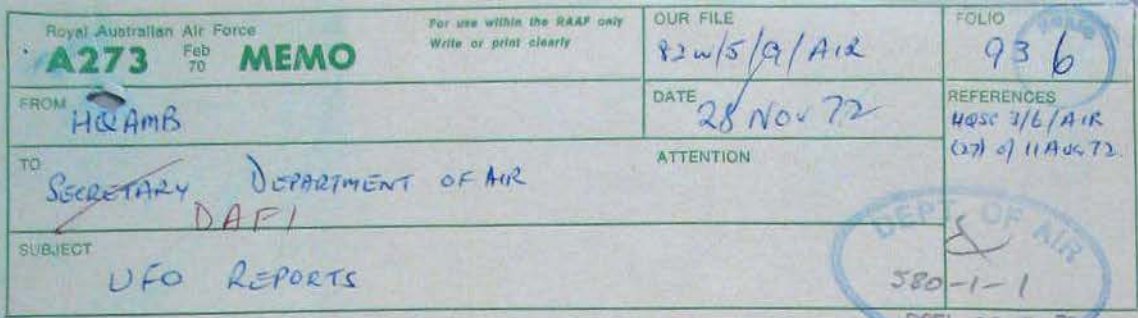 Royal Australian Air Force
A273 Feb 70 MEMO
For use within the RAAF only
Write or print clearly
OUR FILE
82w/5/9/AIR
FOLIO
93 6
FROM
HQAMB
DATE
28 Nov 72
REFERENCES
HQSC 3/6/AIR
(27) of 11 AUG 72.
TO
SECRETARY DEPARTMENT OF AIR
DAFI
ATTENTION
SUBJECT
UFO REPORTS
DEPT OF AIR
580-1-1